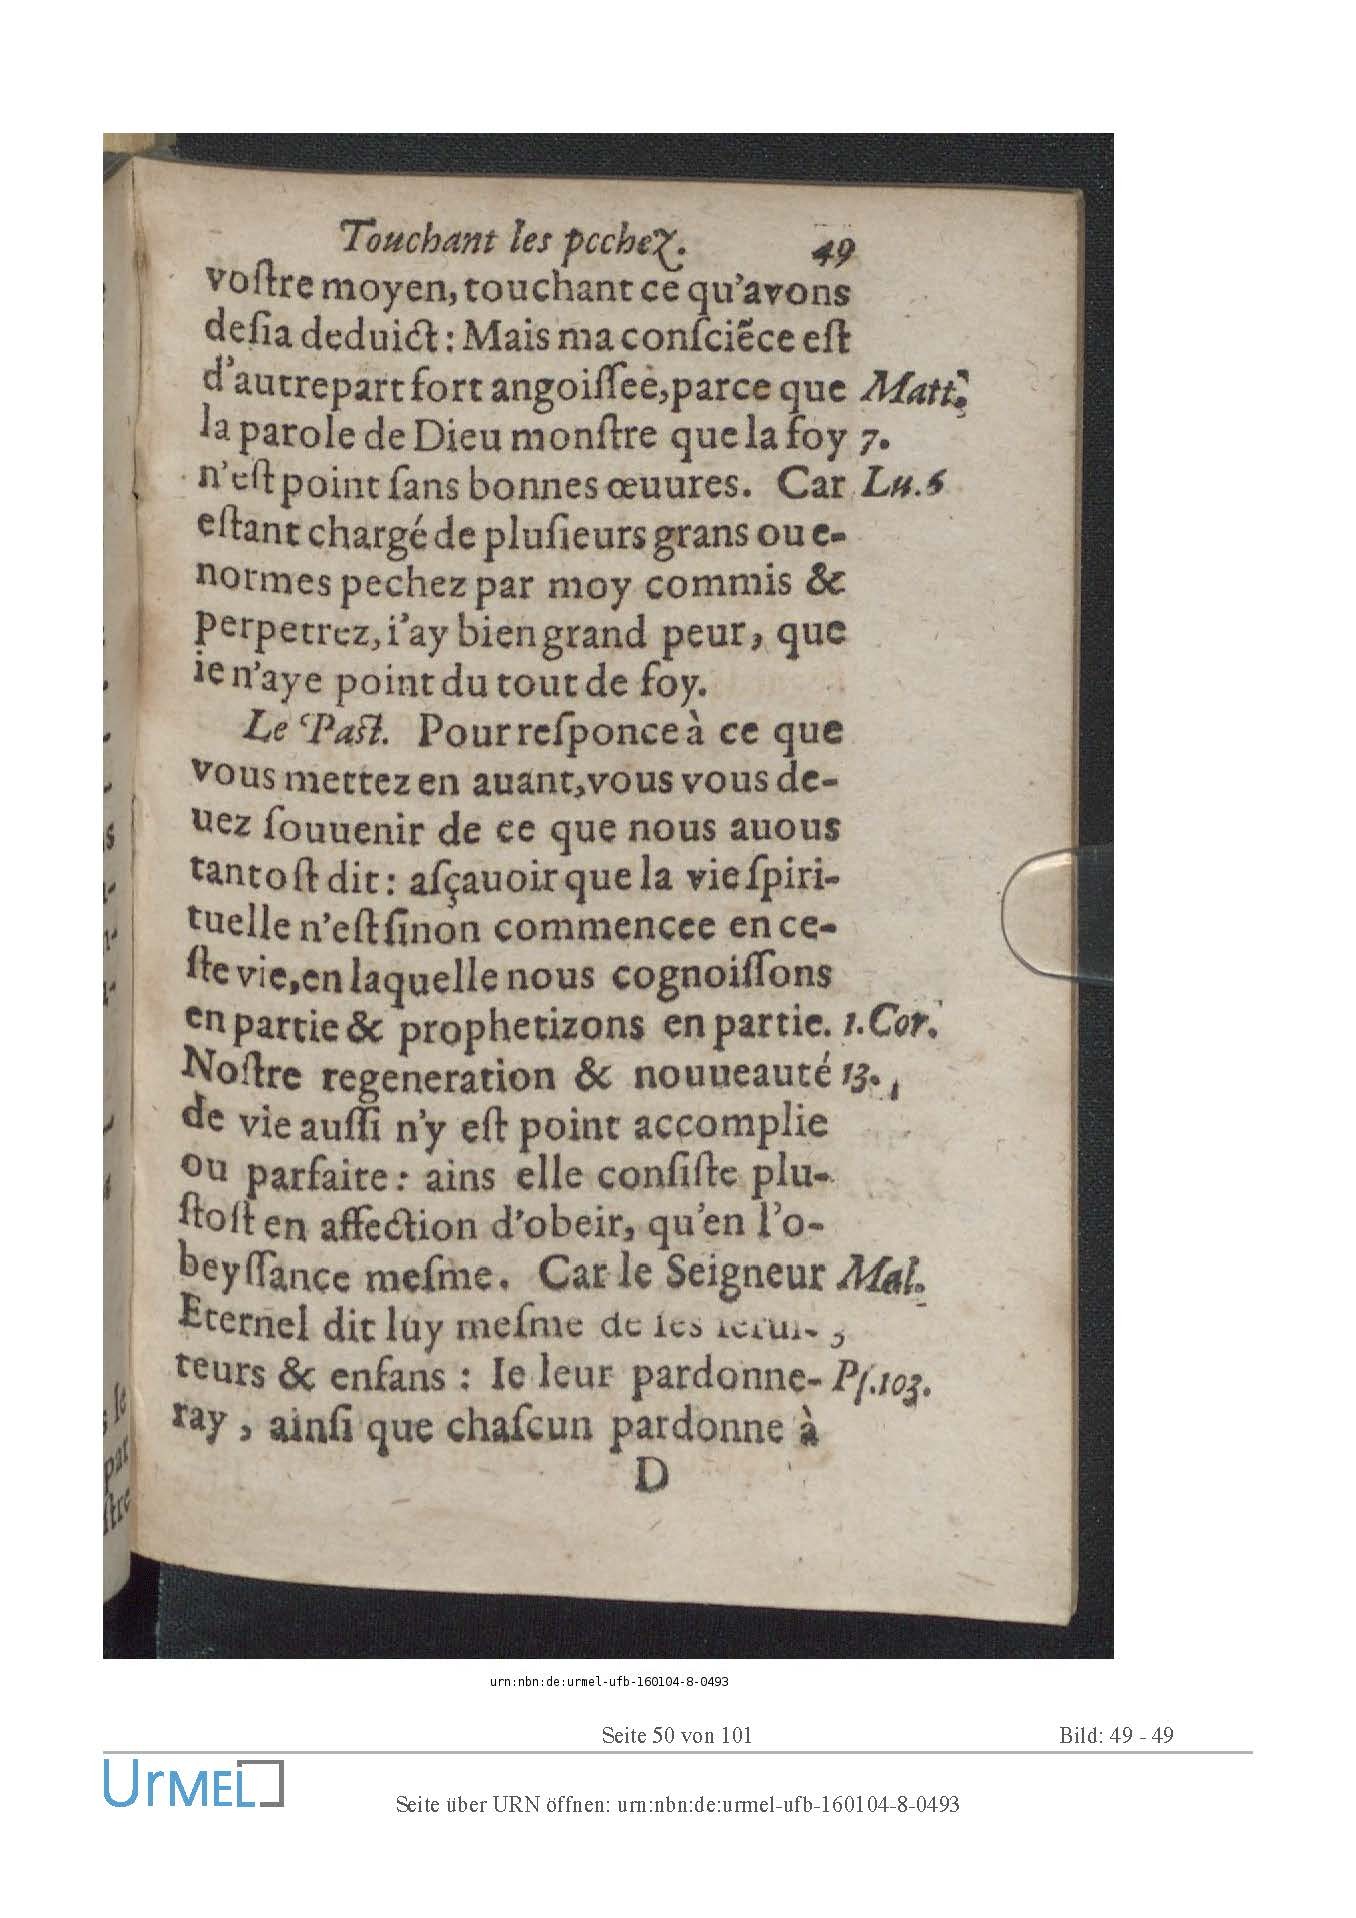 Touchant les pechez. 49
voſtre moyen, touchant ce qu'avons
deſia deduict : Mais ma conſciẽce eſt
d'autrepart fort angoiſſee, parce que Matt.
la parole de Dieu monſtre que la foy 7.
n'eſt point ſans bonnes œuures. Car Lu.6
eſtant chargé de pluſieurs grans ou e-
normes pechez par moy commis &
perpetrez, i'ay bien grand peur, que
ie n'aye point du tout de foy.
Le Paſt. Pour reſponce à ce que
vous mettez en auant, vous vous de-
uez ſouuenir de ce que nous auous
tantoſt dit : aſçauoir que la vie ſpiri-
tuelle n'eſt ſinon commencee en ce-
ſte vie, en laquelle nous cognoiſſons
en partie & prophetizons en partie. 1.Cor.
Noſtre regeneration & nouueauté 13.
de vie auſſi n'y eſt point accomplie
ou parfaite : ains elle conſiſte plu-
ſtoſt en affection d'obeir, qu'en l'o-
beyſſance meſme. Car le Seigneur Mal.
Eternel dit luy meſme de ſes ſerui- 3
teurs & enfans : Ie leur pardonne- Pſ.103.
ray, ainſi que chaſcun pardonne à
D
ſe
par
ſtre
urn:nbn:de:urmel-ufb-160104-8-0493
Seite 50 von 101 Bild: 49 - 49
UrMEL
Seite über URN öffnen: urn:nbn:de:urmel-ufb-160104-8-0493